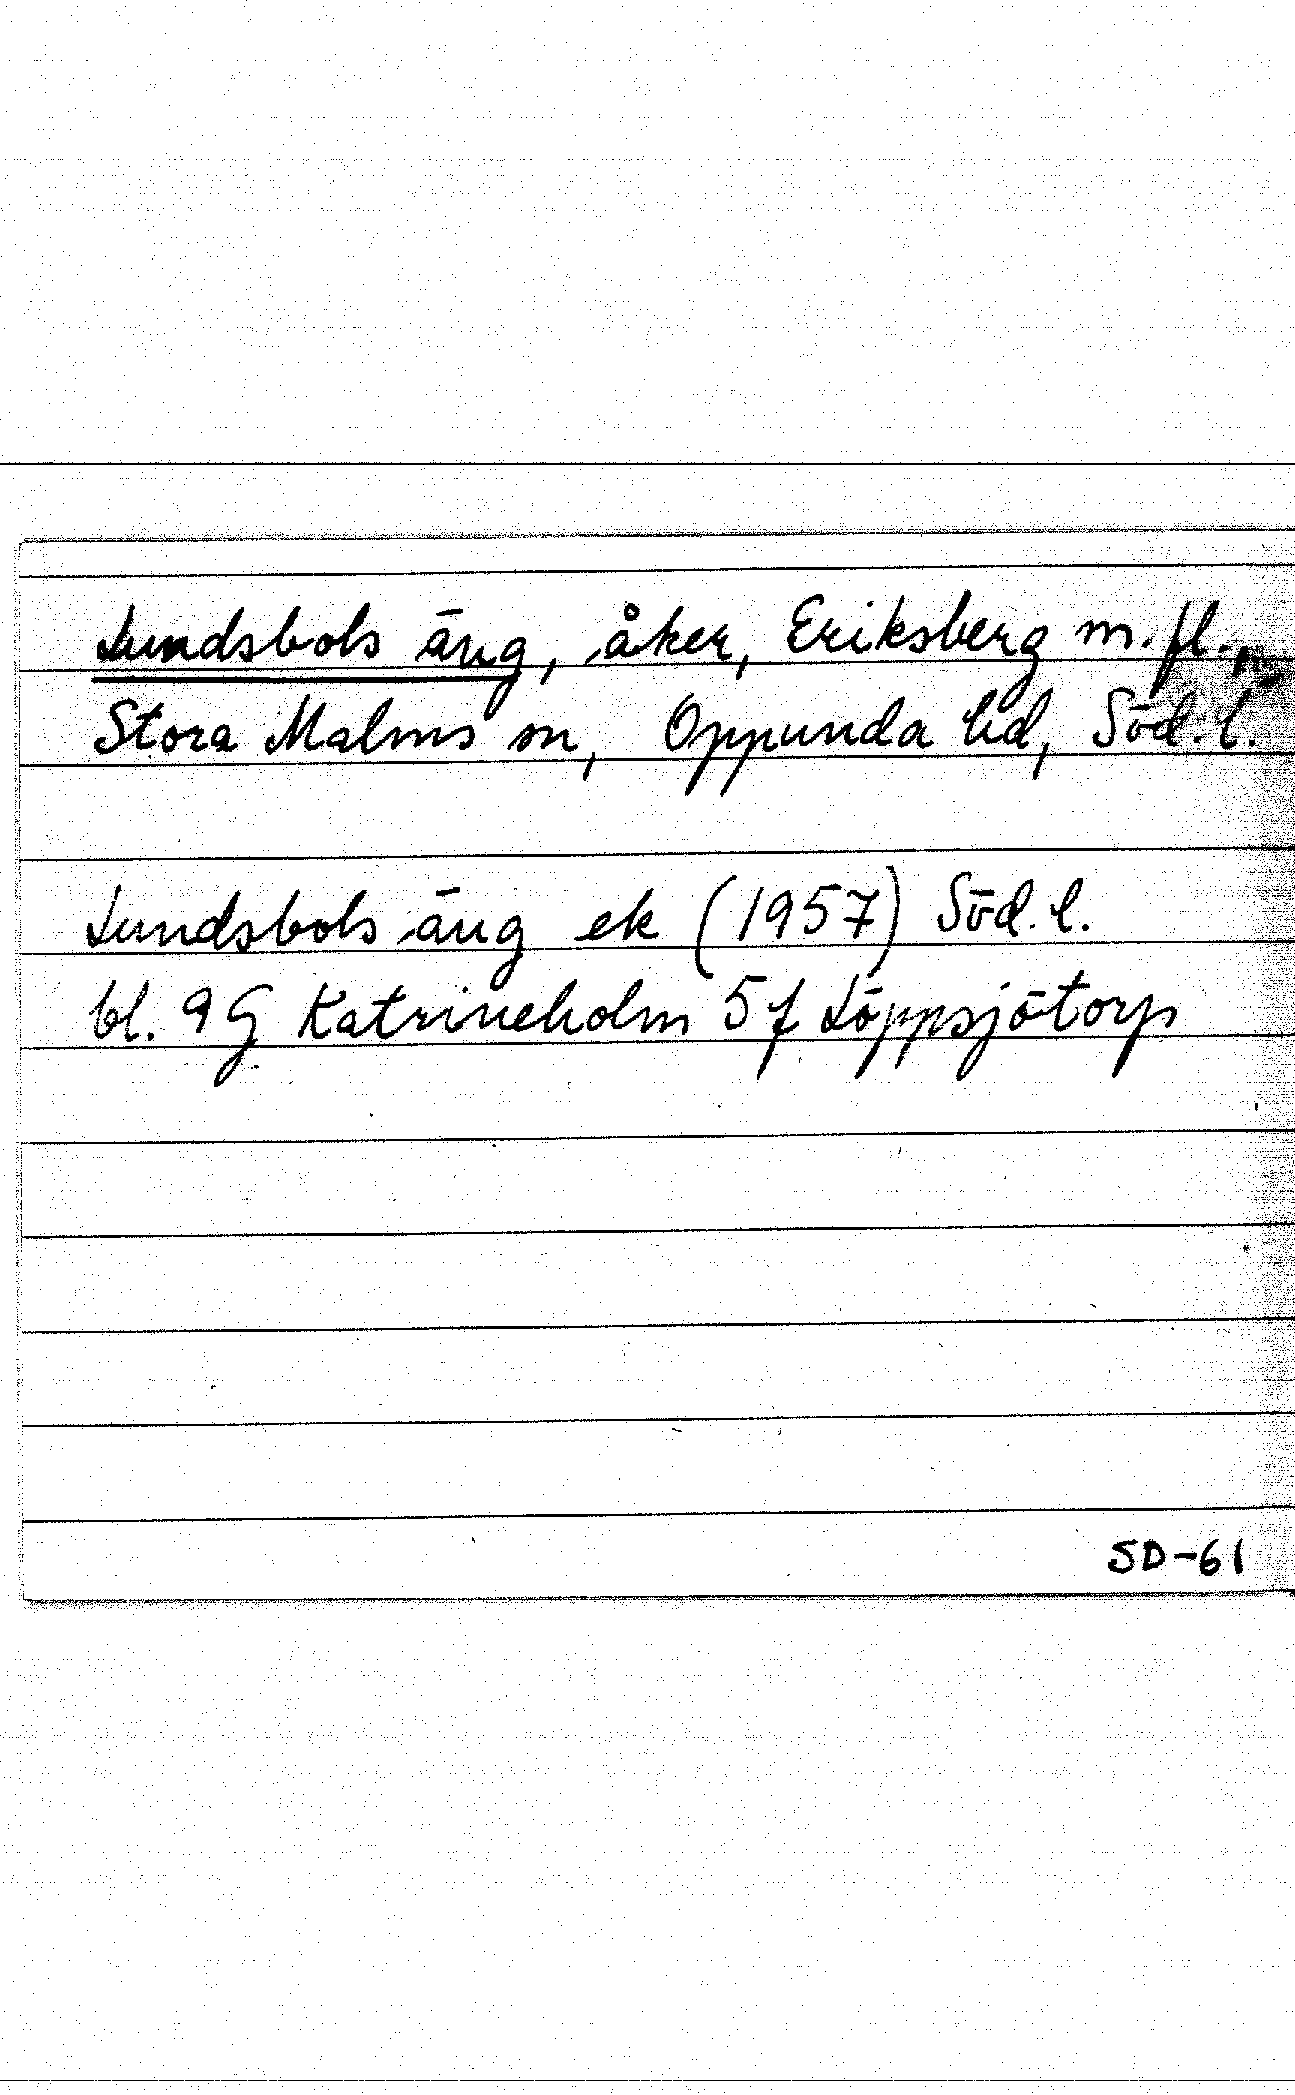 Lundsbols äng, åker, Eriksberg m. fl.,
Stora Malms sn, Oppunda hd, Söd. l.
Lundsbols äng ek (1957) Söd. l.
bl. 9G Katrineholm 5f Löppsjötorp
SD-61